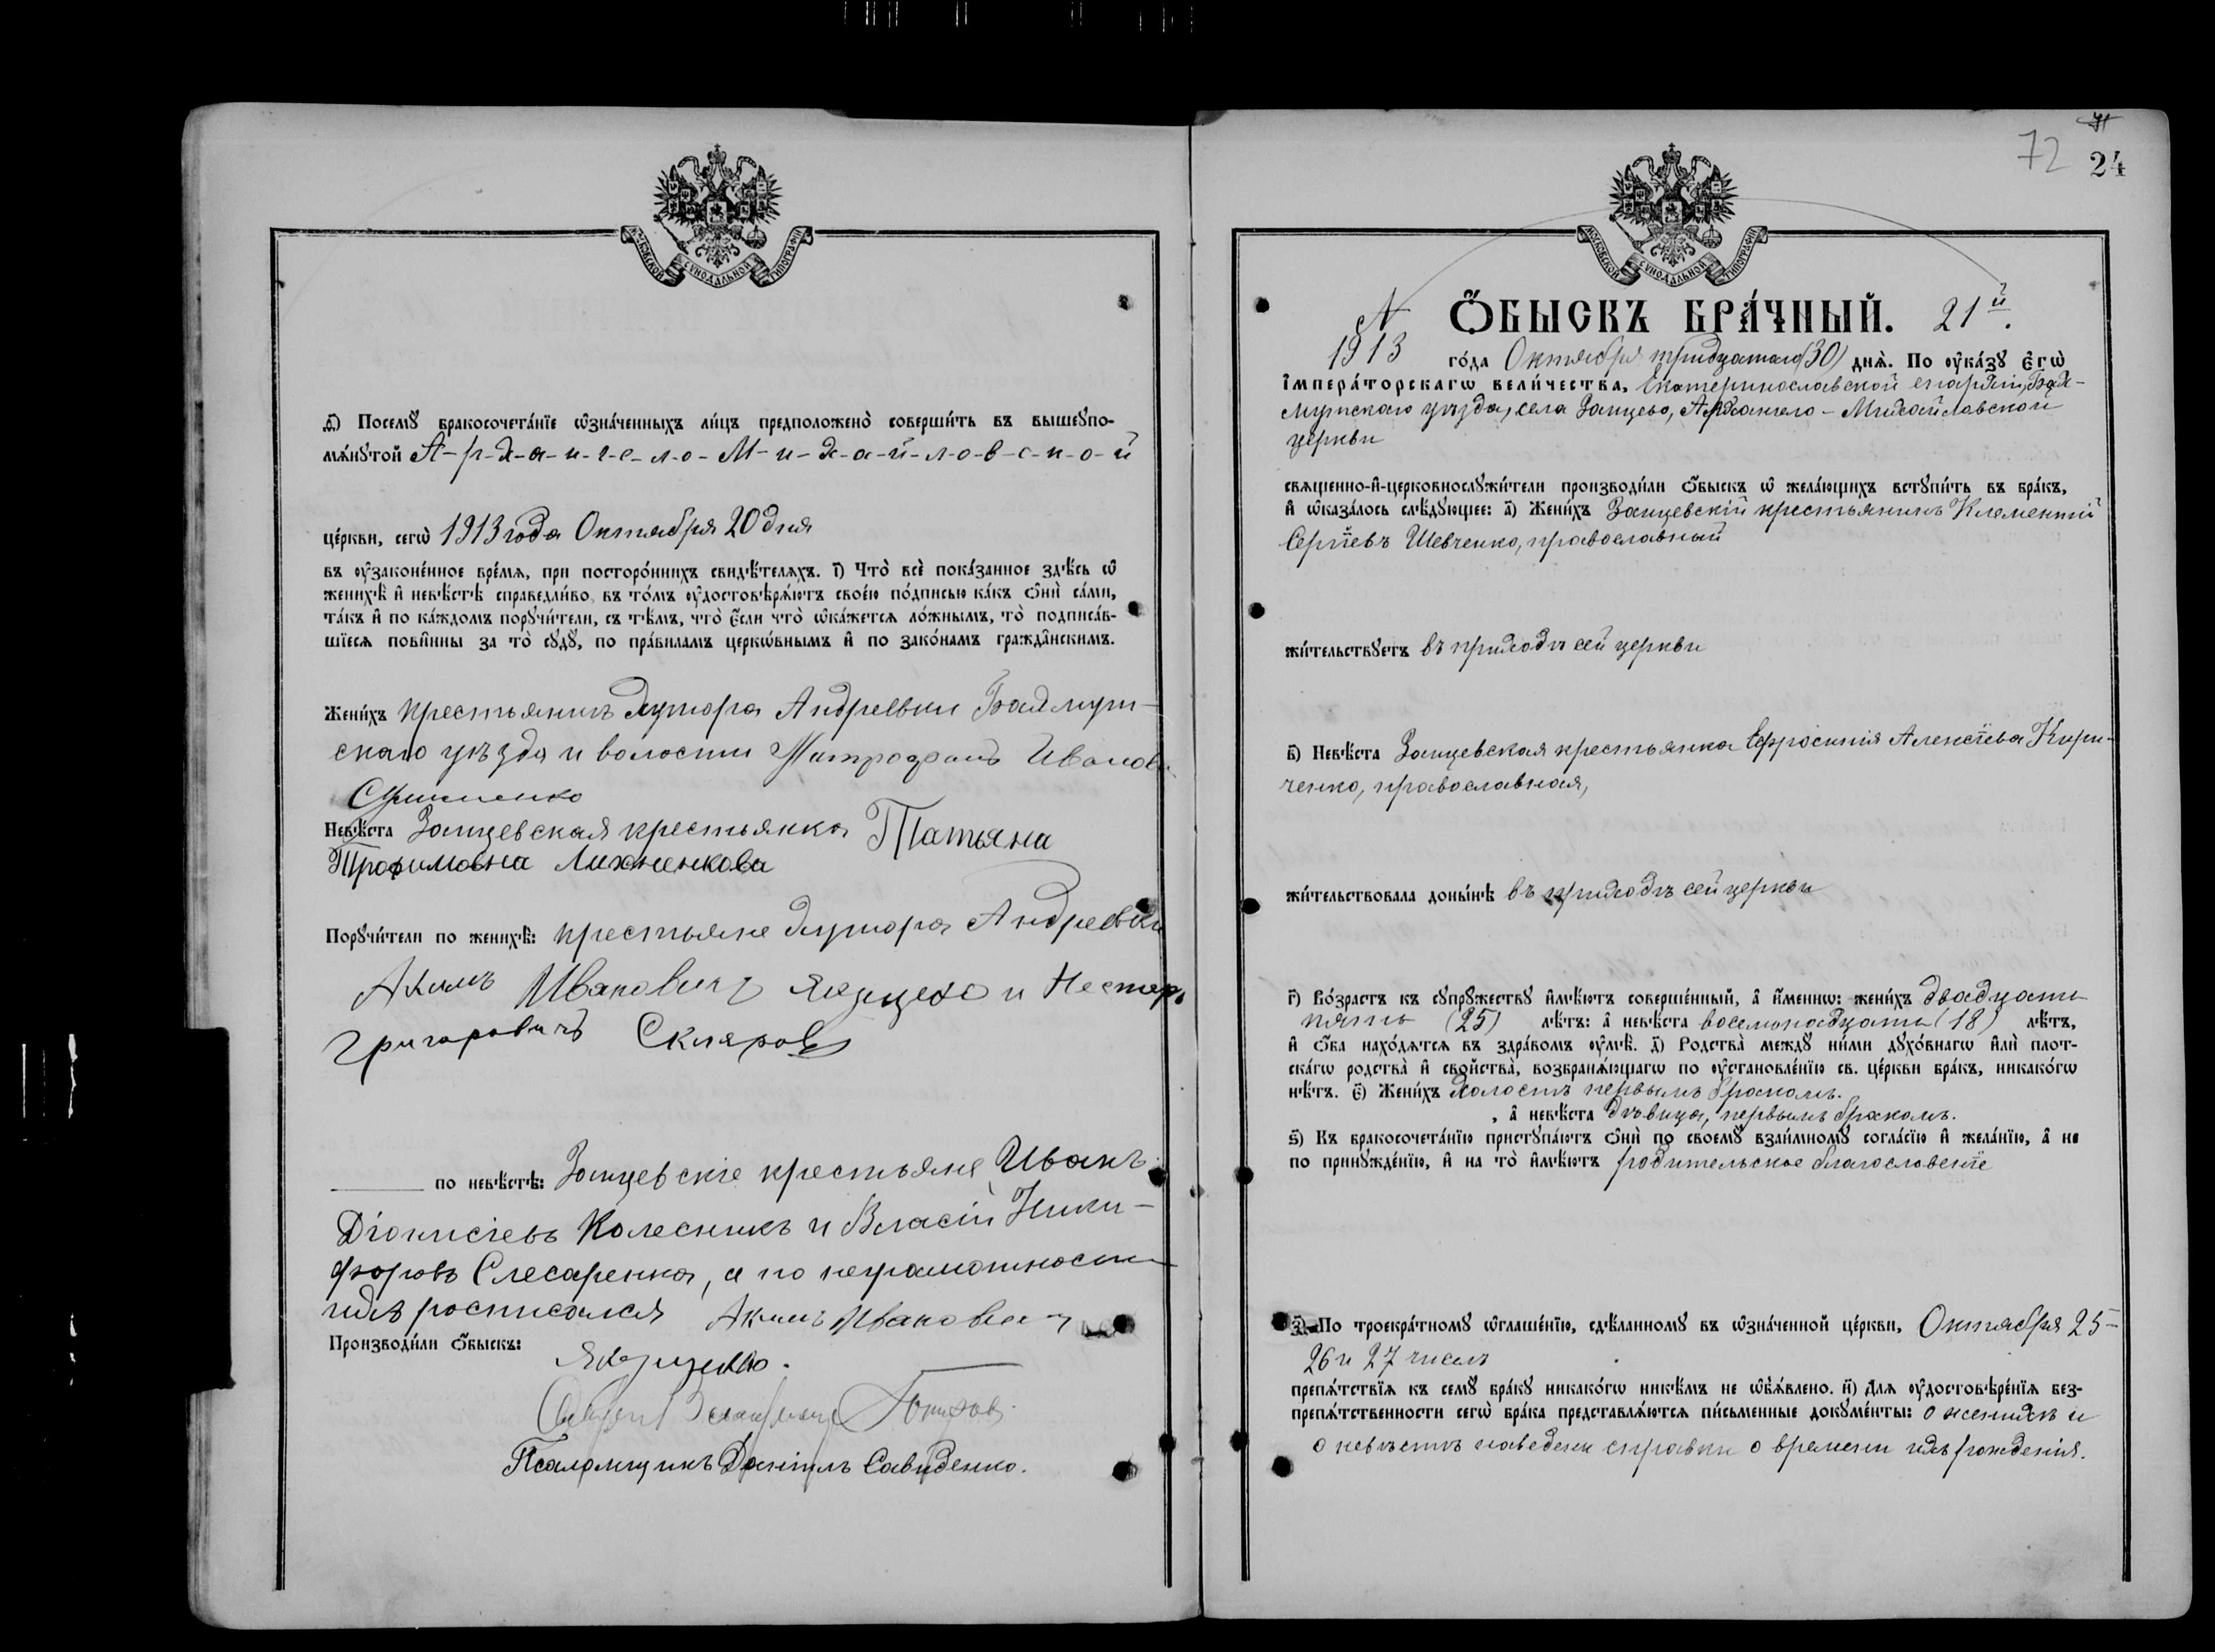 МОСКОВСКОЙ СѴНОДАЛЬНОЙ ТИПОГРАФІИ
ѳ҃) Посемꙋ бракосочета́нїе ѡ҆зна́ченныхъ ли́цъ предположено̀ соверши́ть въ вышеꙋпо-
мѧ́нꙋтой А-р-х-а-н-г-е-л-о-М-и-х-а-й-л-о-в-с-к-о-й
це́ркви, сегѡ̀ 1913 года Октября 20 дня
въ ᲂу҆законе́нное вре́мѧ, при посторо́ннихъ свидѣ́телѧхъ. і҃) Что̀ всѐ пока́занное здѣ́сь ѡ҆
женихѣ̀ и҆ невѣ́стѣ справедли́во, въ то́мъ ᲂу҆достовѣрѧ́ютъ свое́ю по́дписью ка́къ ѻ҆нѝ са́ми,
та́къ и҆ по ка́ждомъ порꙋчи́тели, съ тѣ́мъ, что̀ є҆́сли что̀ ѡ҆ка́жется ло́жнымъ, то̀ подписа́в-
шїеся пови́нны за то̀ сꙋдꙋ̀, по пра́виламъ церко́внымъ и҆ по зако́намъ гражда́нскимъ.
Жени́хъ крестьянинъ хутора Андреевки Бахмут-
скаго уѣзда и волости Митрофанъ Иванов
Невѣ́ста Зайцевская крестьянка Татьяна
Трофимовна Лихненкова
Порꙋчи́тели по женихѣ̀: крестьяне хутора Андреевки
Акимъ Иванович и Нестеръ
Григоровичъ Скляровъ
по невѣ́стѣ: Зайцевскіе крестьяне Иванъ
Діонисіевъ Колесникъ и Власій Ники-
форовъ Слесаренко, а по неграмотности
ихъ росписался Акимъ Иванович
Производи́ли ѻ҆́быскъ:
Псаломщикъ Даніилъ Савиденко.
72 24
МОСКОВСКОЙ СѴНОДАЛЬНОЙ ТИПОГРАФІИ
N Ѻ҆́БЫСКЪ БРА́ЧНЫЙ. 21й.
1913 го́да Октября тридцатаго (30) днѧ̀. По ᲂу҆ка́зꙋ є҆гѡ̀
і҆мпера́торскагѡ вели́чества, Екатеринославской епархіи, Бах-
мутскаго уѣзда, села Зайцево, Архангело-Михайловской
церкви
свѧще́нно-и҆-церковнослꙋжи́тели производи́ли ѻ҆́быскъ ѡ҆ жела́ющихъ встꙋпи́ть въ бра́къ,
и҆ ѡ҆каза́лось слѣ́дꙋющее: а҃) Жени́хъ Зайцевскій крестьянинъ Клементій
Сергіевъ Шевченко, православный
жи́тельствꙋетъ въ приходѣ сей церкви
в҃) Невѣ́ста Зайцевская крестьянка Ефросинія Алексіева Кири-
ченко, православная,
жи́тельствовала доны́нѣ въ приходѣ сей церкви
г҃) Во́зрастъ къ сꙋпрꙋ́жествꙋ и҆мѣ́ютъ соверше́нный, а҆ и҆́меннѡ: жени́хъ двадцати
пяти (25) лѣ́тъ: а҆ невѣ́ста восемнадцати (18) лѣ́тъ,
и҆ ѻ҆́ба нахо́дѧтсѧ въ здра́вомъ ᲂу҆мѣ̀. д҃) Родства̀ междꙋ̀ ни́ми дꙋхо́внагѡ и҆лѝ плот-
ска́гѡ родства̀ и҆ сво́йства̀, возбранѧ́ющагѡ по ᲂу҆становле́нїю св. це́ркви бра́къ, никако́гѡ
нѣ́тъ. є҃) Жени́хъ холостъ первымъ бракомъ.
, а҆ невѣ́ста дѣвица, первымъ бракомъ.
ѕ҃) Къ бракосочета́нїю пристꙋпа́ютъ ѻ҆нѝ по своемꙋ̀ взаи́мномꙋ согла́сїю и҆ жела́нїю, а҆ не
по принꙋжде́нїю, и҆ на то̀ и҆мѣ́ютъ родительское благословеніе
з҃) По троекра́тномꙋ ѡ҆глаше́нїю, сдѣ́ланномꙋ въ ѡ҆зна́ченной це́ркви, Октября 25-
26 и 27 числъ
препѧ́тствїѧ къ семꙋ̀ бра́кꙋ никако́гѡ никѣ́мъ не ѡ҆б̾ѧ́влено. и҃) Для ᲂу҆достовѣре́нїѧ без-
препѧ́тственности сегѡ̀ бра́ка представлѧ́ются пи́сьменные докꙋме́нты: о женихѣ и
о невѣстѣ наведены справки о времени ихъ рожденія.